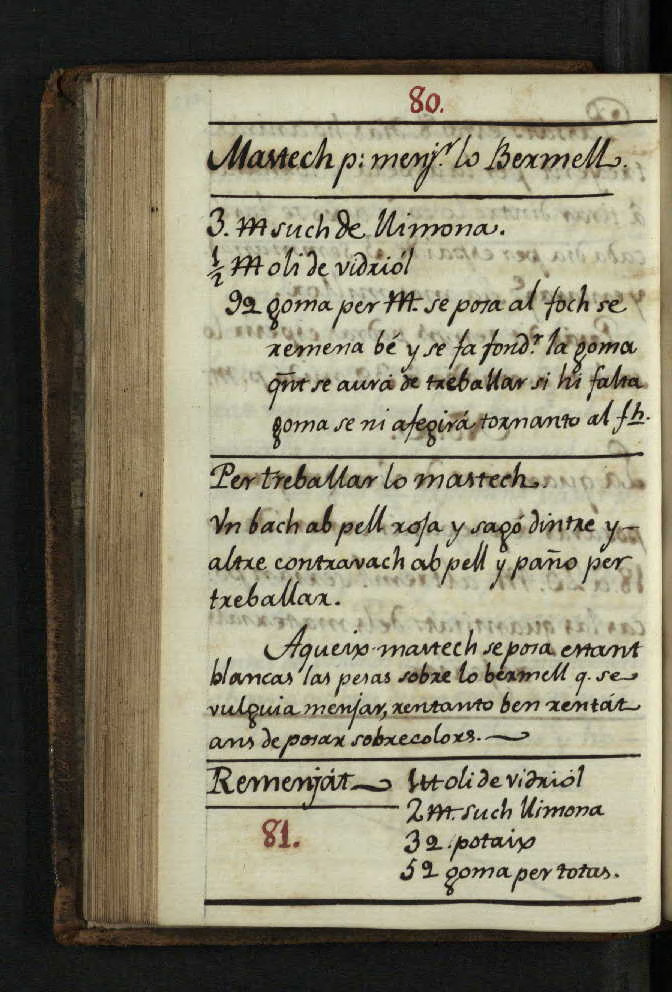 80.
Mastech p: menj.r lo Bermell.
3. ₶ such de llimona.
½ ₶ oli de vidriól
9 goma per ₶. se posa al foch se
remena bé y se fa fond.r la goma
qñt se aurá de treballar si hi falta
goma se ni afegirá tornanto al fh.
Per treballar lo mastech.
Vn bach ab pell roja y sagó dintre y
altre contravach ab pell y paño per
treballar.
Aqueix mastech se posa estant
blancas las pesas sobre lo bermell q. se
vulguia menjar, rentanto ben rentát
ans de posar sobrecolors.
Remenját 1 ₶ oli de vidriól
2 ₶. such llimona
81. 3 potaix
5 goma per totas.